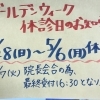 ゴールデンウィーク
休診日のお知
8(日)～5/6(月)休
7(火)院長会合の為、
最終受付16:30となり